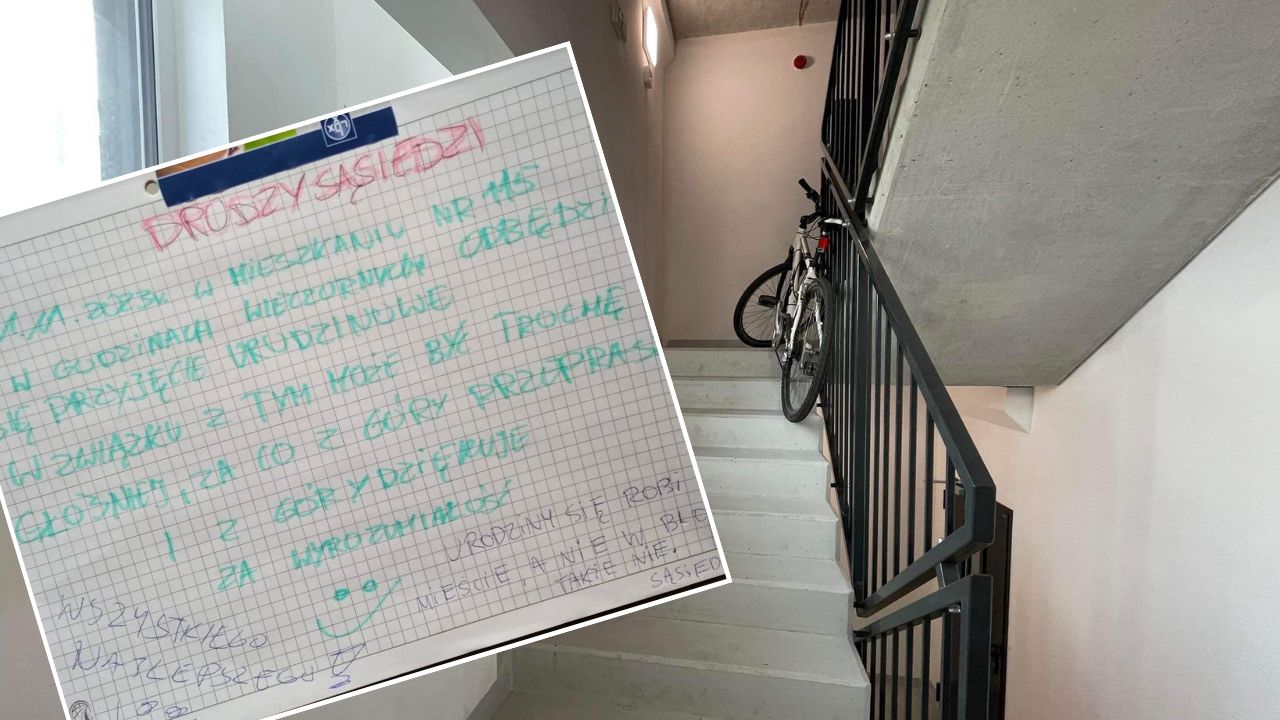 LUX
DRODZY SĄSIEDZI
.11.2023R W MIESZKANIU NR 115
W GODZINACH WIECZORNYCH ODBĘDZI
SIĘ PRZYJĘCIE URODZINOWE
W ZWIĄZKU Z TYM MOŻE BYĆ TROCHĘ
GŁOŚNIEJ, ZA CO Z GÓRY PRZEPRAS
I Z GÓRY DZIĘKUJE
ZA WYROZUMIAŁOŚĆ
URODZINY SIĘ ROBI
MIEŚCIE, A NIE W BLO
TAKIE NIE.
SĄSIED
WSZYSTKIEGO
NAJLEPSZEGO!